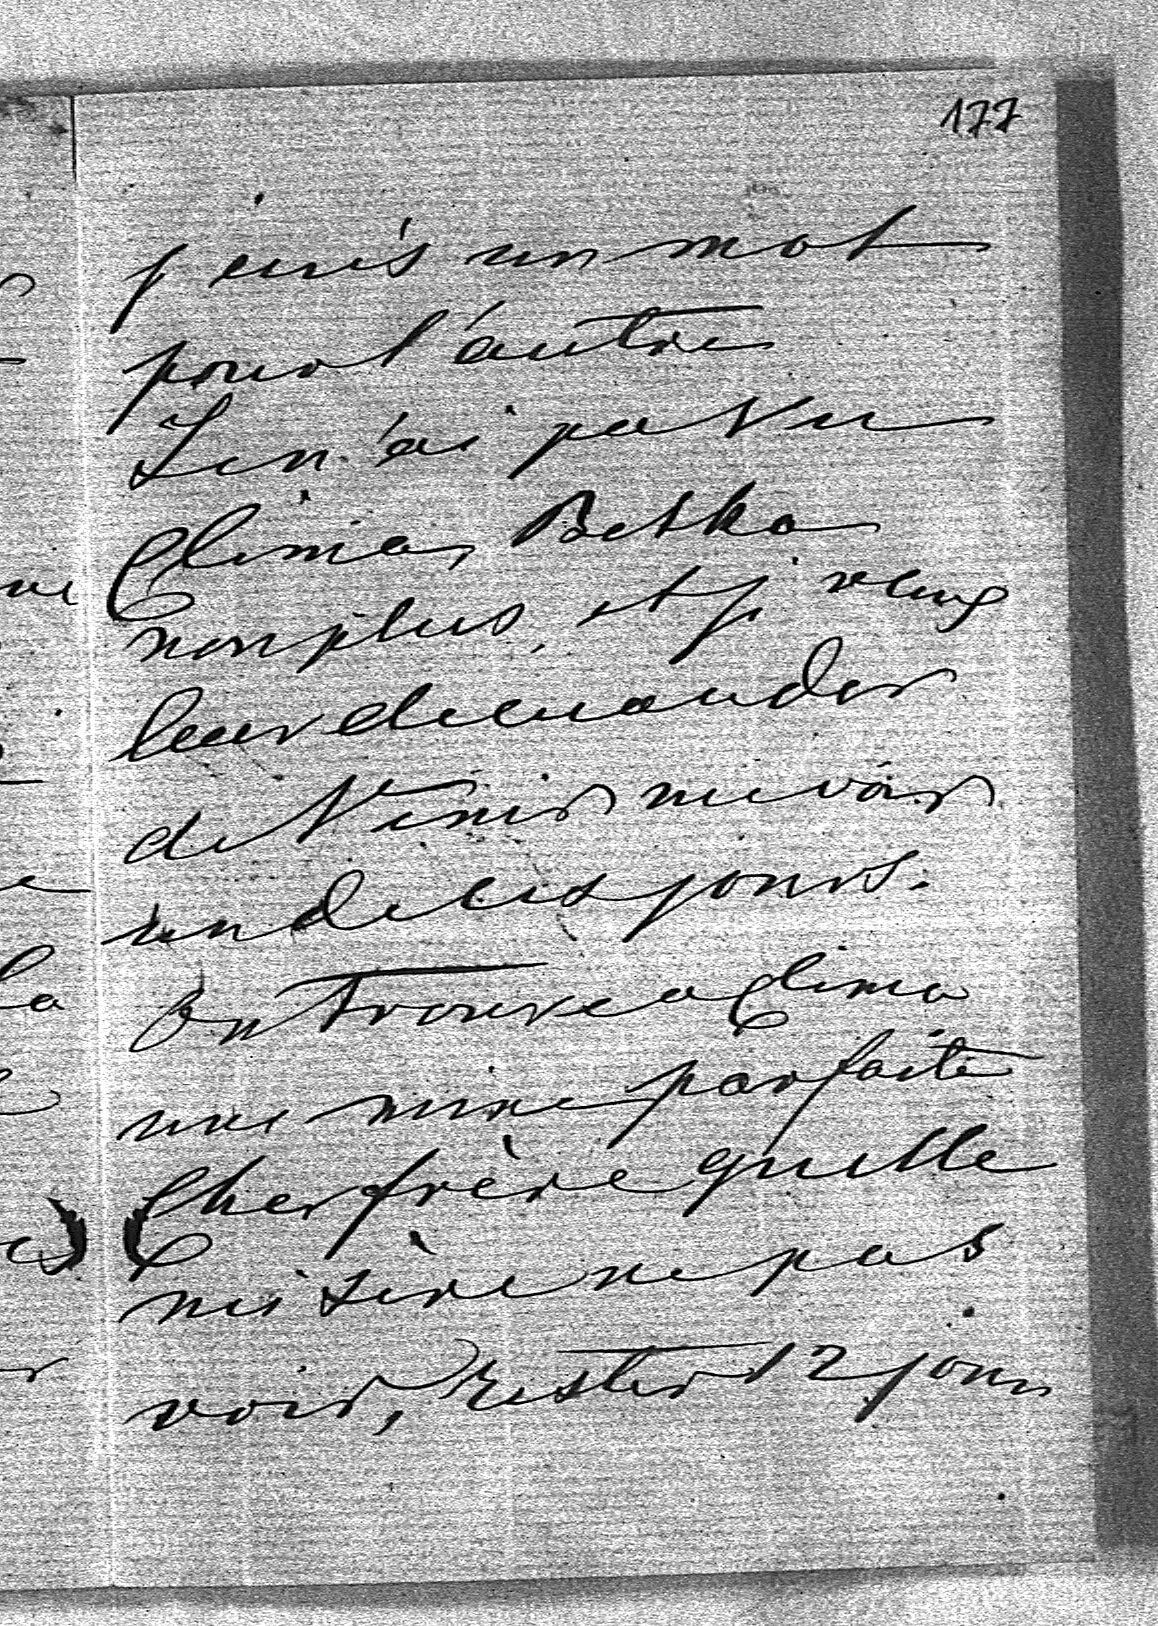 177
j'ecris un mot
pour l'autre
Je n'ai pas vu
Clima, Betka
non plus, et je veux
leur demander
de Venir me voir
un de ces jours.
On trouve a Clima
une mine parfaite
Cher frère quelle
misère ne pas
voir, rester 12 jours